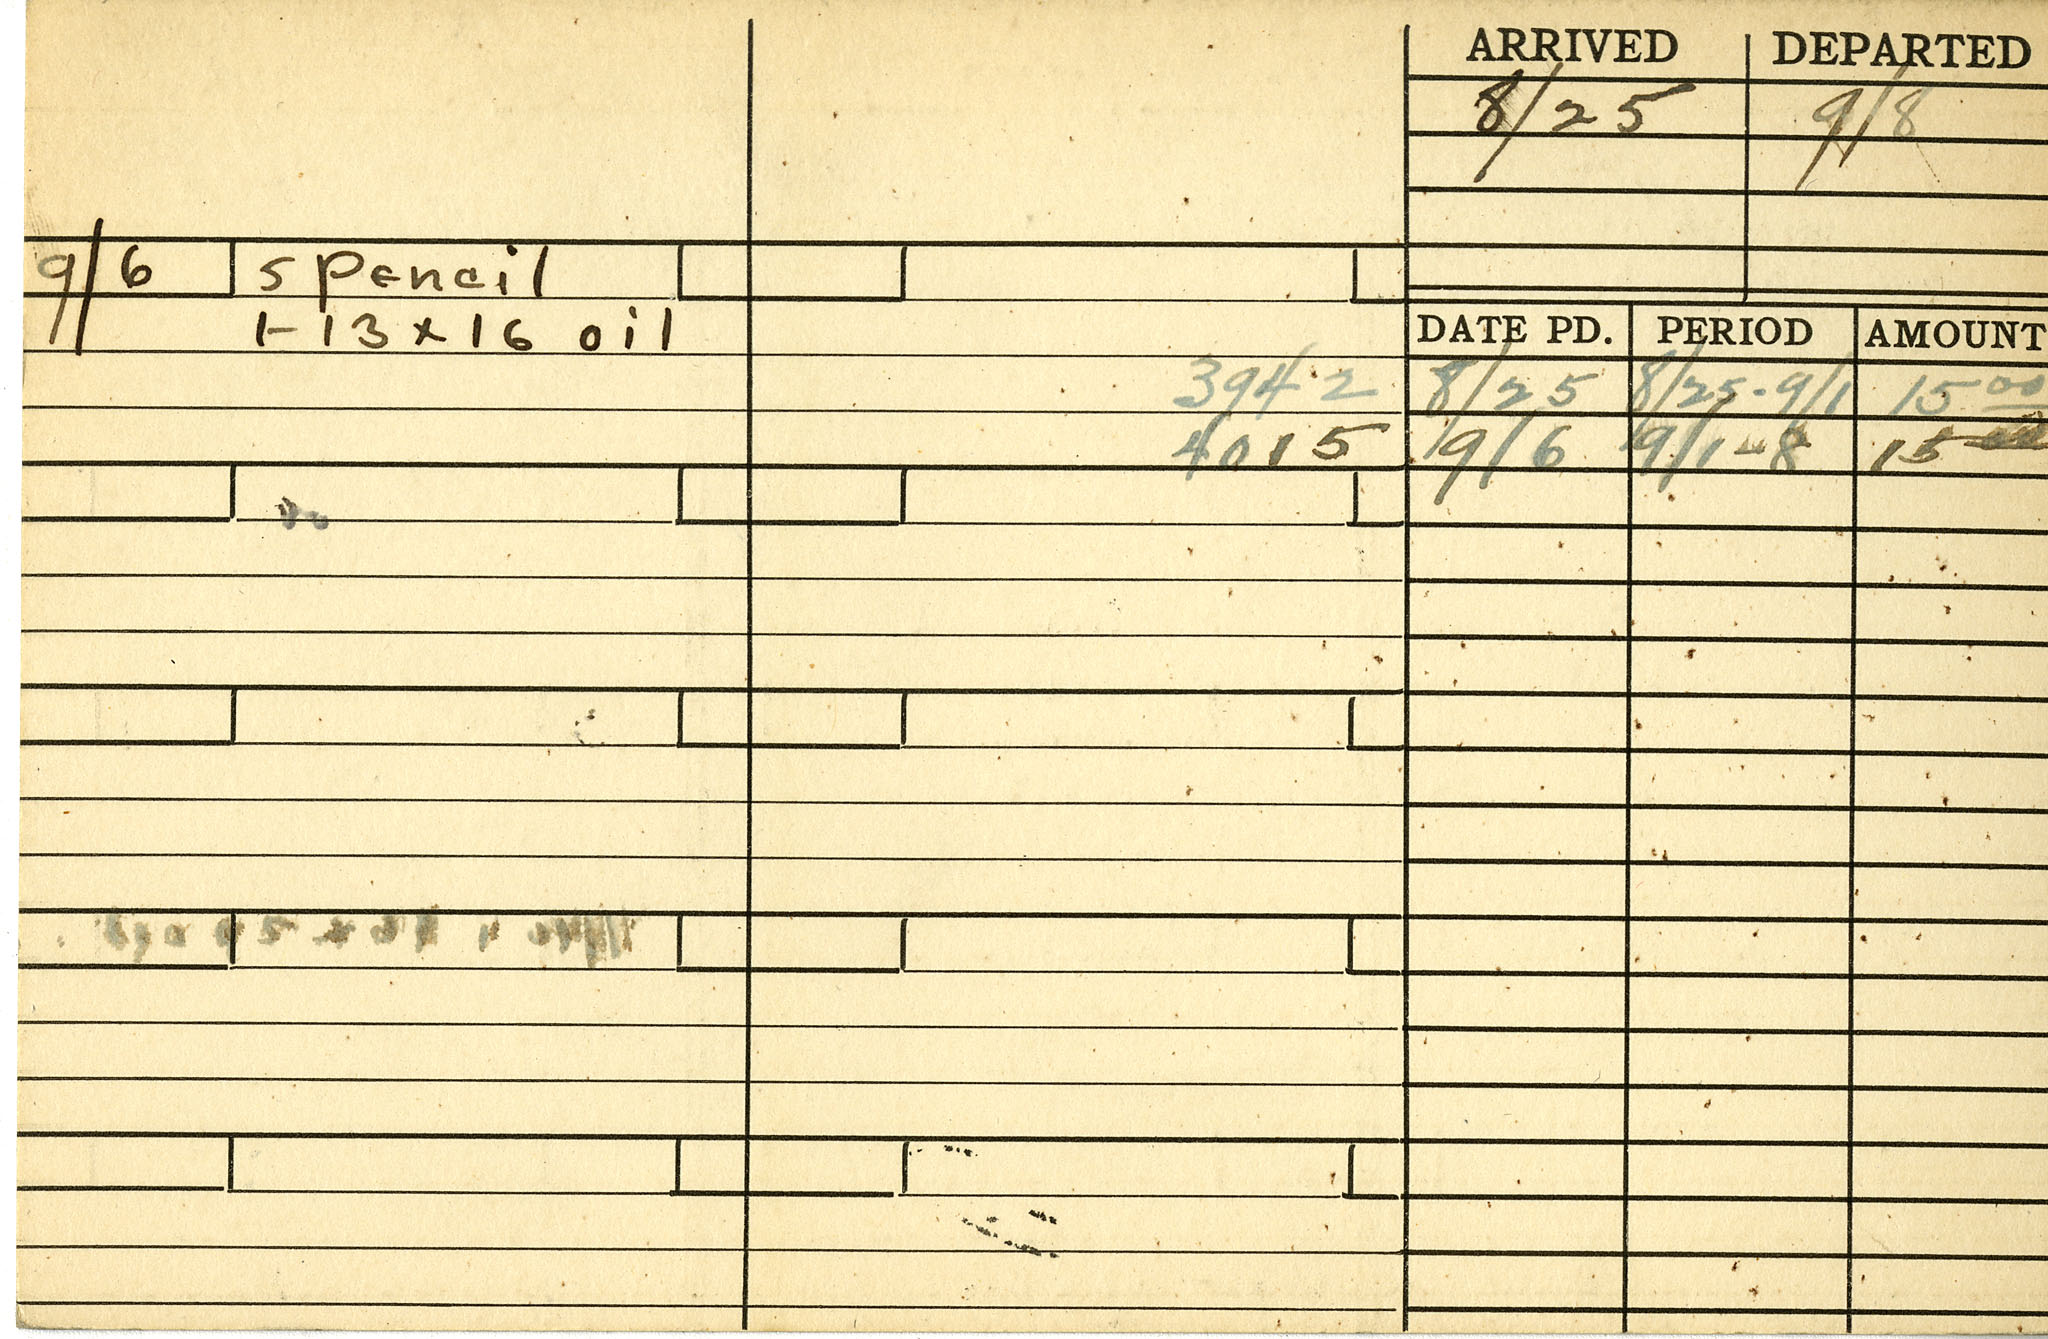 ARRIVED DEPARTED
8/25 9/8
9/6 5 pencil
1-13x16 oil
DATE PD. PERIOD AMOUNT
3942 8/25 8/25-9/1 15 00
4015 9/6 9/1-8 15 00